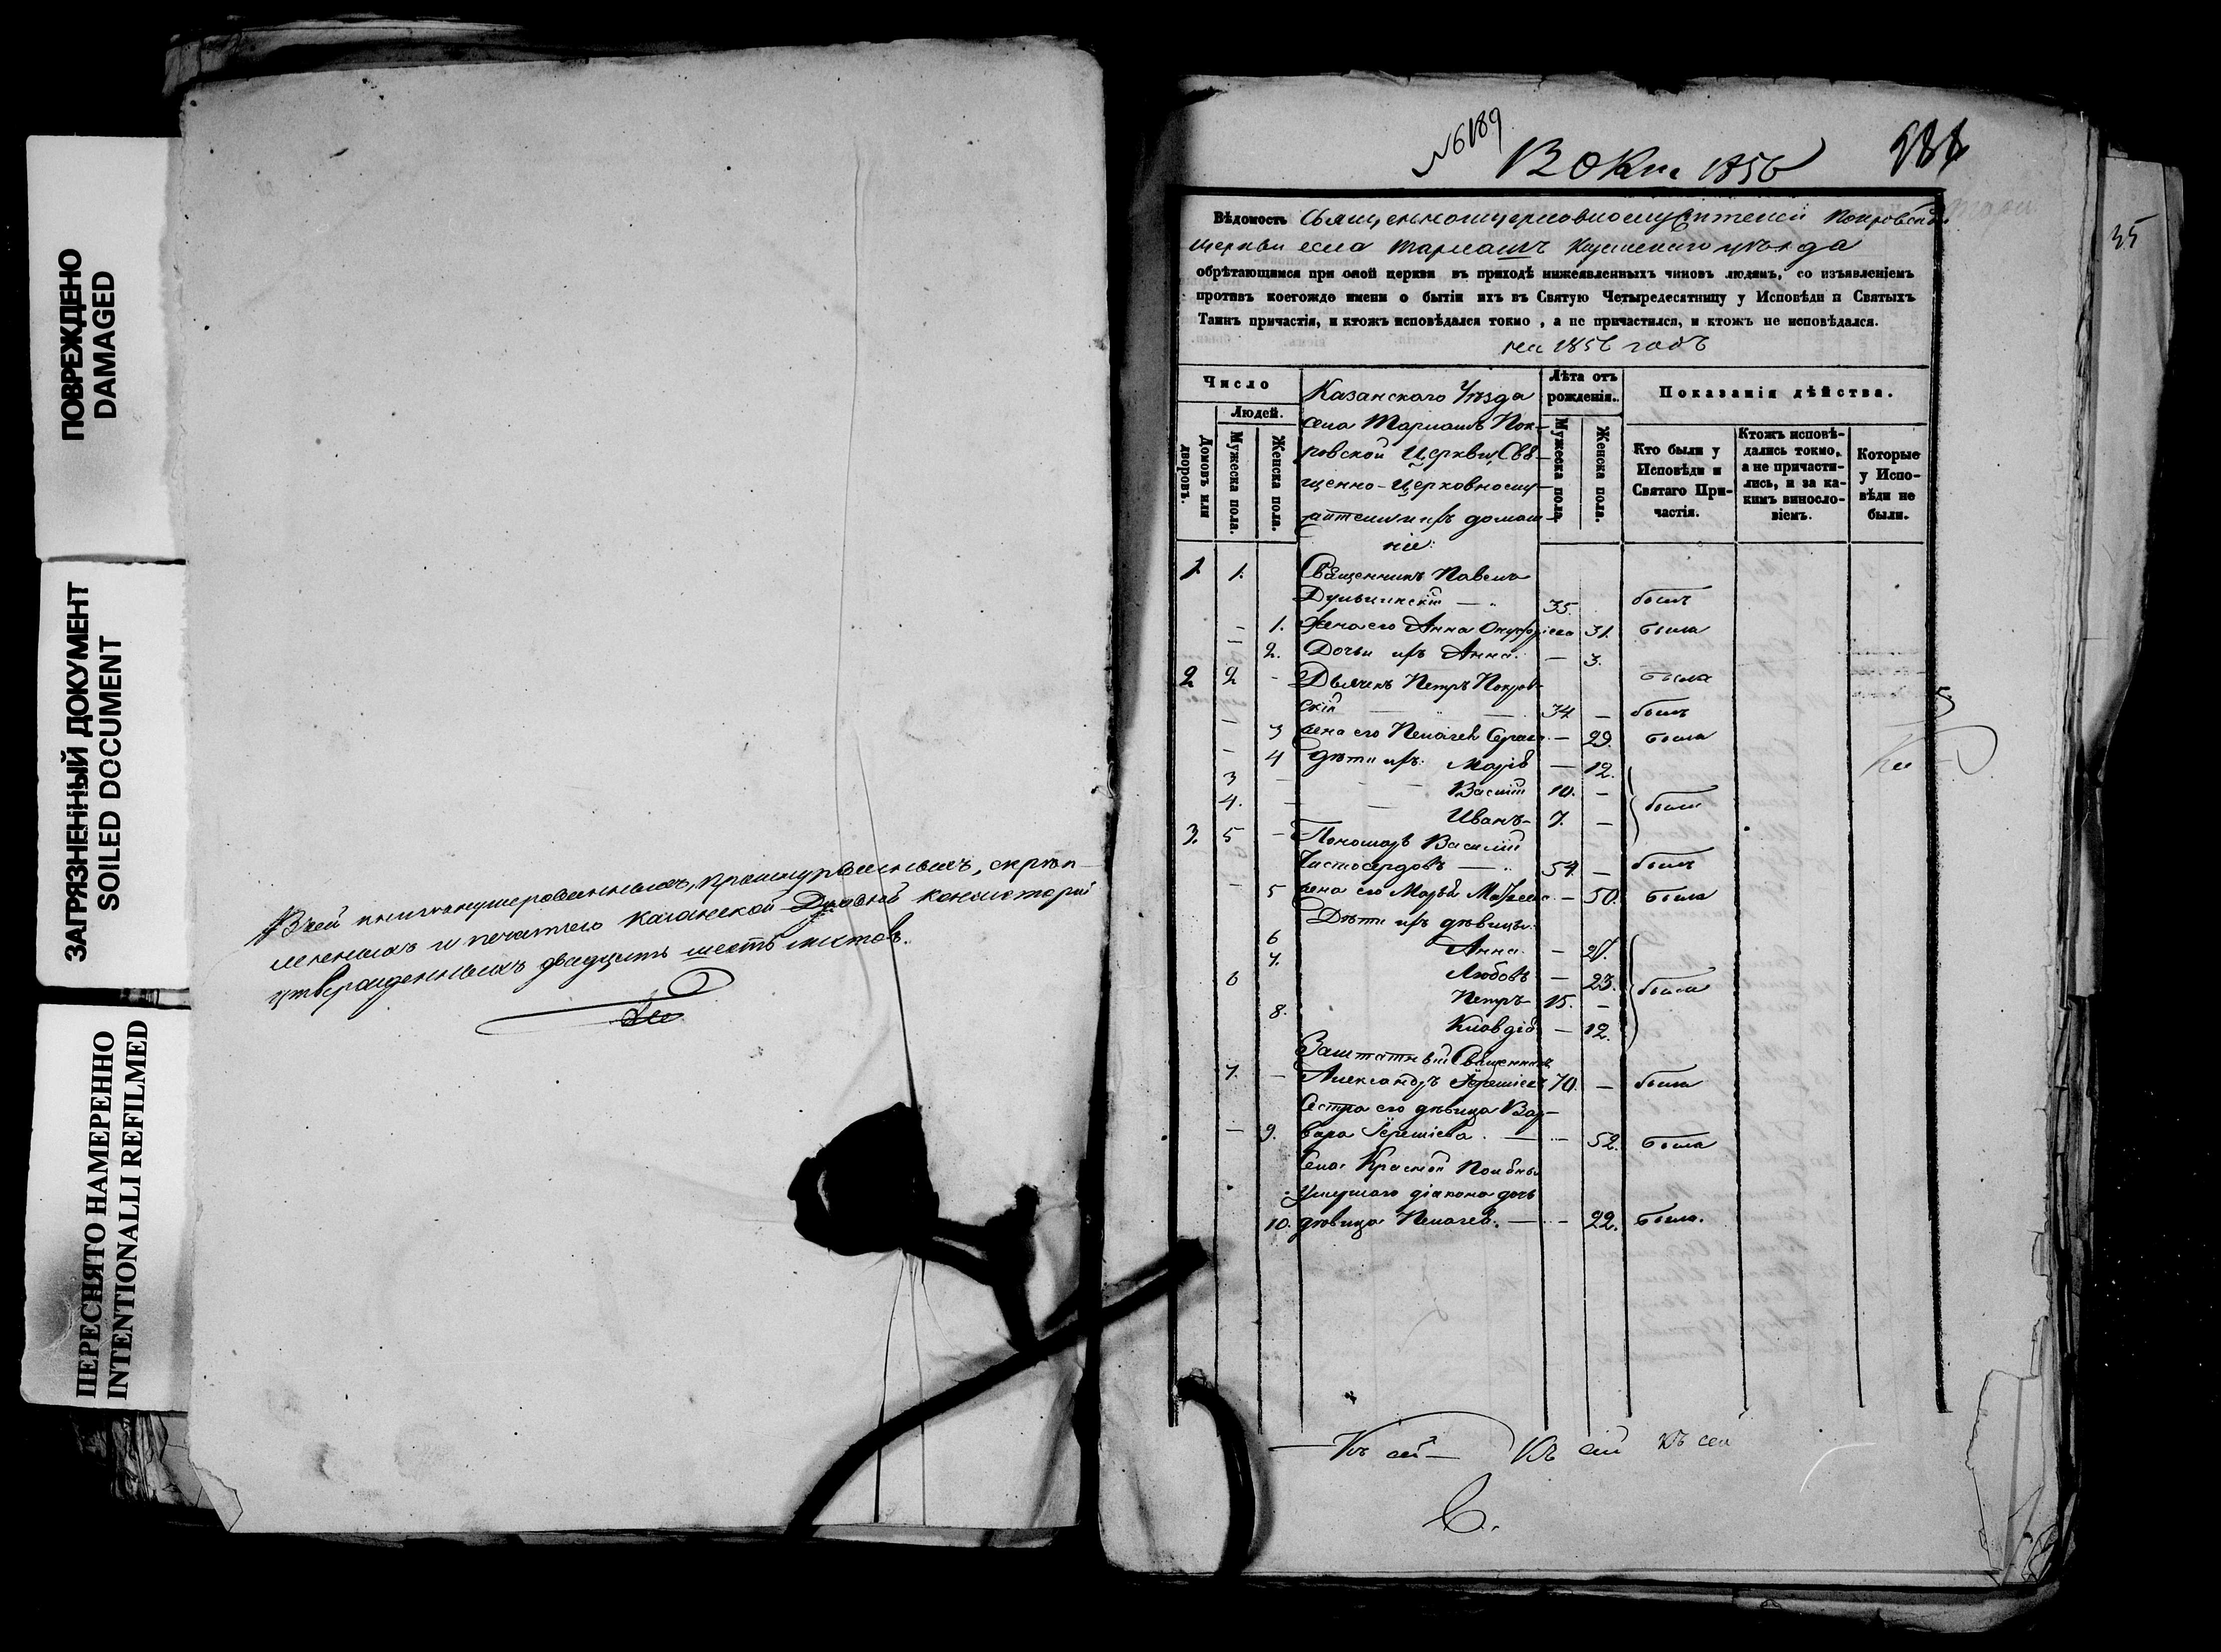 ПОВРЕЖДЕНО
DAMAGED
ЗАГРЯЗНЕННЫЙ ДОКУМЕНТ
SOILED DOCUMENT
ПЕРЕСНЯТО НАМЕРЕННО
INTENTIONALLI REFILMED
Въ сей книги нумерованныхъ, прошнурованныхъ, скреп-
ленныхъ и печатью Казанской Духовной Консисторіи
утвержденныхъ двадцать шесть листовъ.
№6189
12 Окт 1856
35
Вѣдомость Священноцерковнослужителей Покровской
церкви села Тарлашъ Казанского уѣзда
обрѣтающимся при оной церкви въ приходѣ нижеявленныхъ чиновъ людямъ, со изъявленіемъ
противъ коегождо имени о бытіи ихъ въ Святую Четыредесятницу у Исповѣди и Святыхъ
Таинъ причастія, и ктожъ исповѣдался токмо, а не причастился, и ктожъ не исповѣдался.
на 1856 годъ
Число
Людей.
Домовъ или дворовъ.
Мужеска пола.
Женска пола.
Казанского Уѣзда
села Тарлашъ Пок-
ровской Церкви Свя-
щенно-Церковнослу-
жители и ихъ домаш-
ніе:
Лѣта отъ рожденія.
Мужеска пола.
Женска пола.
Показанія дѣйства.
Кто были у Исповѣди и Святаго Причастія.
Ктожъ исповѣ-дались токмо, а не причасти-лись, и за ка-кимъ виносло-віемъ.
Которые у Испо-вѣди не были.
1. 1. Священникъ Павелъ
35. былъ
— 1. Жена его Анна Онуфріева 31. была
— 2. Дочь ихъ Анна. — 3. была
2 2 - Дьячекъ Петръ Покров-
скій — 34 — былъ
— 3 Жена его Пелагея — 29. была
— 4 Дѣти ихъ: Марія — 12.
3 — Василій 10. — были
4. — Иванъ 7. —
3. 5 — Пономарь Василій
Чистосердовъ — 54. — былъ
— 5 Жена его Марья — 50. была
Дѣти ихъ дѣвицы:
6 Анна. —
7. Любовь — 23. были
6 Петръ 15. —
8. Клавдія — 12.
Заштатный Священникъ
7. — Александръ 70. — былъ
Сестра его дѣвица Вар-
— 9. вара — 52. была
Села Красной Поляны
умершаго діакона дочь
10. дѣвица Пелагея. — 22. была.
Къ сей — Къ сей Къ сей